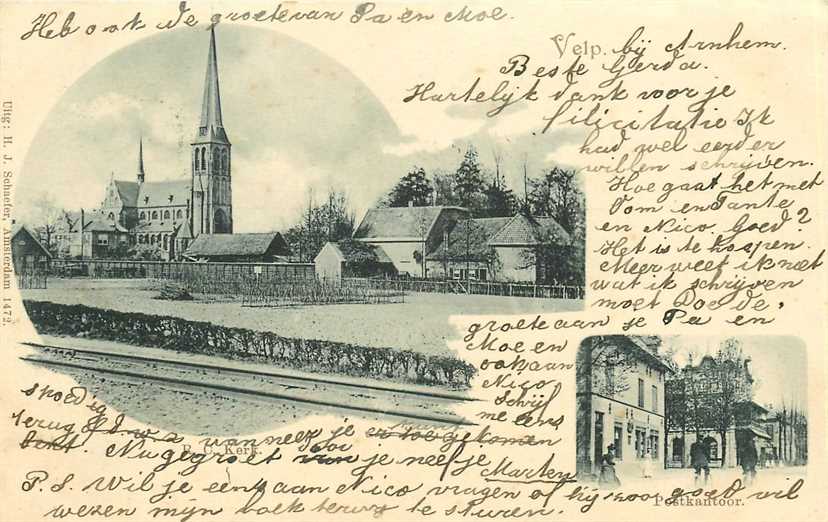 Heb ook de groete van Pa en Moe.
Velp. bij Arnhem.
Beste Gerda.
Hartelijk dank voor je
filicitatie Ik
had wel eerder
willen schrijven.
Hoe gaat het met
Oom en Tante
en Nico, Goed?
Het is te hoopen.
Meer weet ik niet
wat ik schrijven
moet Doe de,
groete aan je Pa en
Moe en
ook aan
Nico
Schrijf
me eens
spoedig
terug wanneer je
gekomen
bent. Nu gegroet door je neefje Marten
P.S. Wil je een aan Nico vragen of hij zoo goed wil
wezen mijn boek terug te sturen.
R. C. Kerk.
Postkantoor.
Uitg: H. J. Schaefer, Amsterdam 1472.